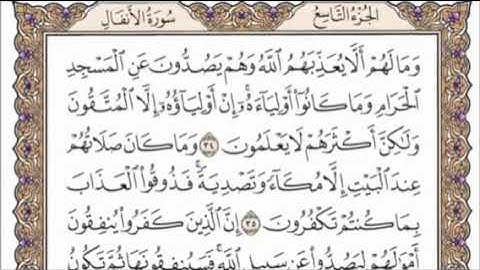 الجُزْءُ التَّاسِعُ
سُورَةُ الأَنفَالِ
وَمَا لَهُمْ أَلَّا يُعَذِّبَهُمُ ٱللَّهُ وَهُمْ يَصُدُّونَ عَنِ ٱلْمَسْجِدِ
ٱلْحَرَامِ وَمَا كَانُوٓا۟ أَوْلِيَآءَهُۥٓ إِنْ أَوْلِيَآؤُهُۥٓ إِلَّا ٱلْمُتَّقُونَ
وَلَٰكِنَّ أَكْثَرَهُمْ لَا يَعْلَمُونَ ٣٤ وَمَا كَانَ صَلَاتُهُمْ
عِندَ ٱلْبَيْتِ إِلَّا مُكَآءً وَتَصْدِيَةً ۚ فَذُوقُوا۟ ٱلْعَذَابَ
بِمَا كُنتُمْ تَكْفُرُونَ ٣٥ إِنَّ ٱلَّذِينَ كَفَرُوا۟ يُنفِقُونَ
أَمْوَٰلَهُمْ لِيَصُدُّوا۟ عَن سَبِيلِ ٱللَّهِ ۚ فَسَيُنفِقُونَهَا ثُمَّ تَكُونُ